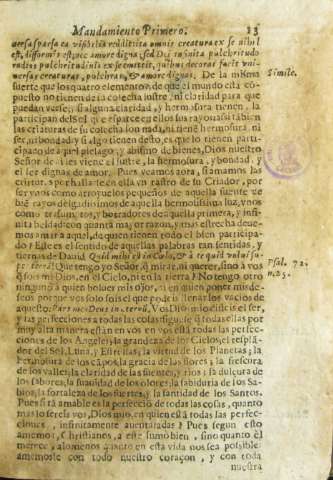 Mandamiento Primero. 13
est, difformis est, nec amore digna, sed Dei infinita pulchritudo
radios pulchritudinis ex se emittit, quibus decoras facit uni-
versas creaturas, pulchras, & amore dignas. De la misma
suerte que los quatro elementos, de que el mundo està com-
puesto no tienen de su cosecha lustre, ni claridad para que
puedan verse, si alguna claridad, y hermosura tienen, la
participan del Sol que esparce en ellos sus rayos: assi tambien
las criaturas de su cosecha son nada, ni tienē hermosura, ni
ser, ni bondad, y si algo tienen desto, es que lo tienen parti-
cipado de aquel pielago, y abismo de bienes, Dios nuestro
Señor de quien viene el lustre, la hermosura, y bondad, y
el ser dignas de amor. Pues veamos aora, si amamos las
criaturas por hallarse en ellas un rastro de su Criador, por
ser unos como arroyuelos pequeños de aquella fuente de
como trasumptos, y borradores de aquella primera, y infi-
nita beldad: quanto mas, y mayor razon, y mas estrecha deve-
mos amar à aquel, de quien tienen todo el bien participa-
do? Este es el sentido de aquellas palabras tan sentidas, y
tiernas de David. Quid mihi est in Cœlo, & à te quid volui su-
per terrā? Que tengo yo Señor, ò mirar, ni querer, sino à vos
que sois mi Dios, en el Cielo, ni en la tierra? No tengo otro
ninguno à quien bolver mis ojos, ni en quien poner mis de-
seos porque vos solo sois el que podeis llenar los vacios de
aquesto. Pars mea Deus in æternū. Vos Dios mio disteis el ser,
y las perfecciones à todas las cosas, que si todas ellas por
muy alta manera estàn en vos en vos està todas las perfec-
ciones de los Angeles; la grandeza de los Cielos, el resplā-
dor del Sol, Luna, y Estrellas; la virtud de los Planetas; la
hermosura de los cāpos, la gracia de las flores; la frescura
de los valles, la claridad de las fuentes, y rios; la dulçura de
los sabores, la suavidad de los olores, la sabiduria de los Sa-
bios, la fortaleza de los fuertes, y la santidad de los Santos.
Pues si tā amable es la perfecciō de todas las cosas, quanto
mas lo sereis vos, Dios mio, en quien està todas las perfec-
ciones, infinitamente aventajadas? Pues segun esto
amemos, Christianos, à este sumo bien, sino quanto èl
merece, alomenos quanto en esta vida nos sea possible:
amemosle con todo nuestro coraçon, y con toda
nuestra
Simile.
Psal. 72.
n. 25.